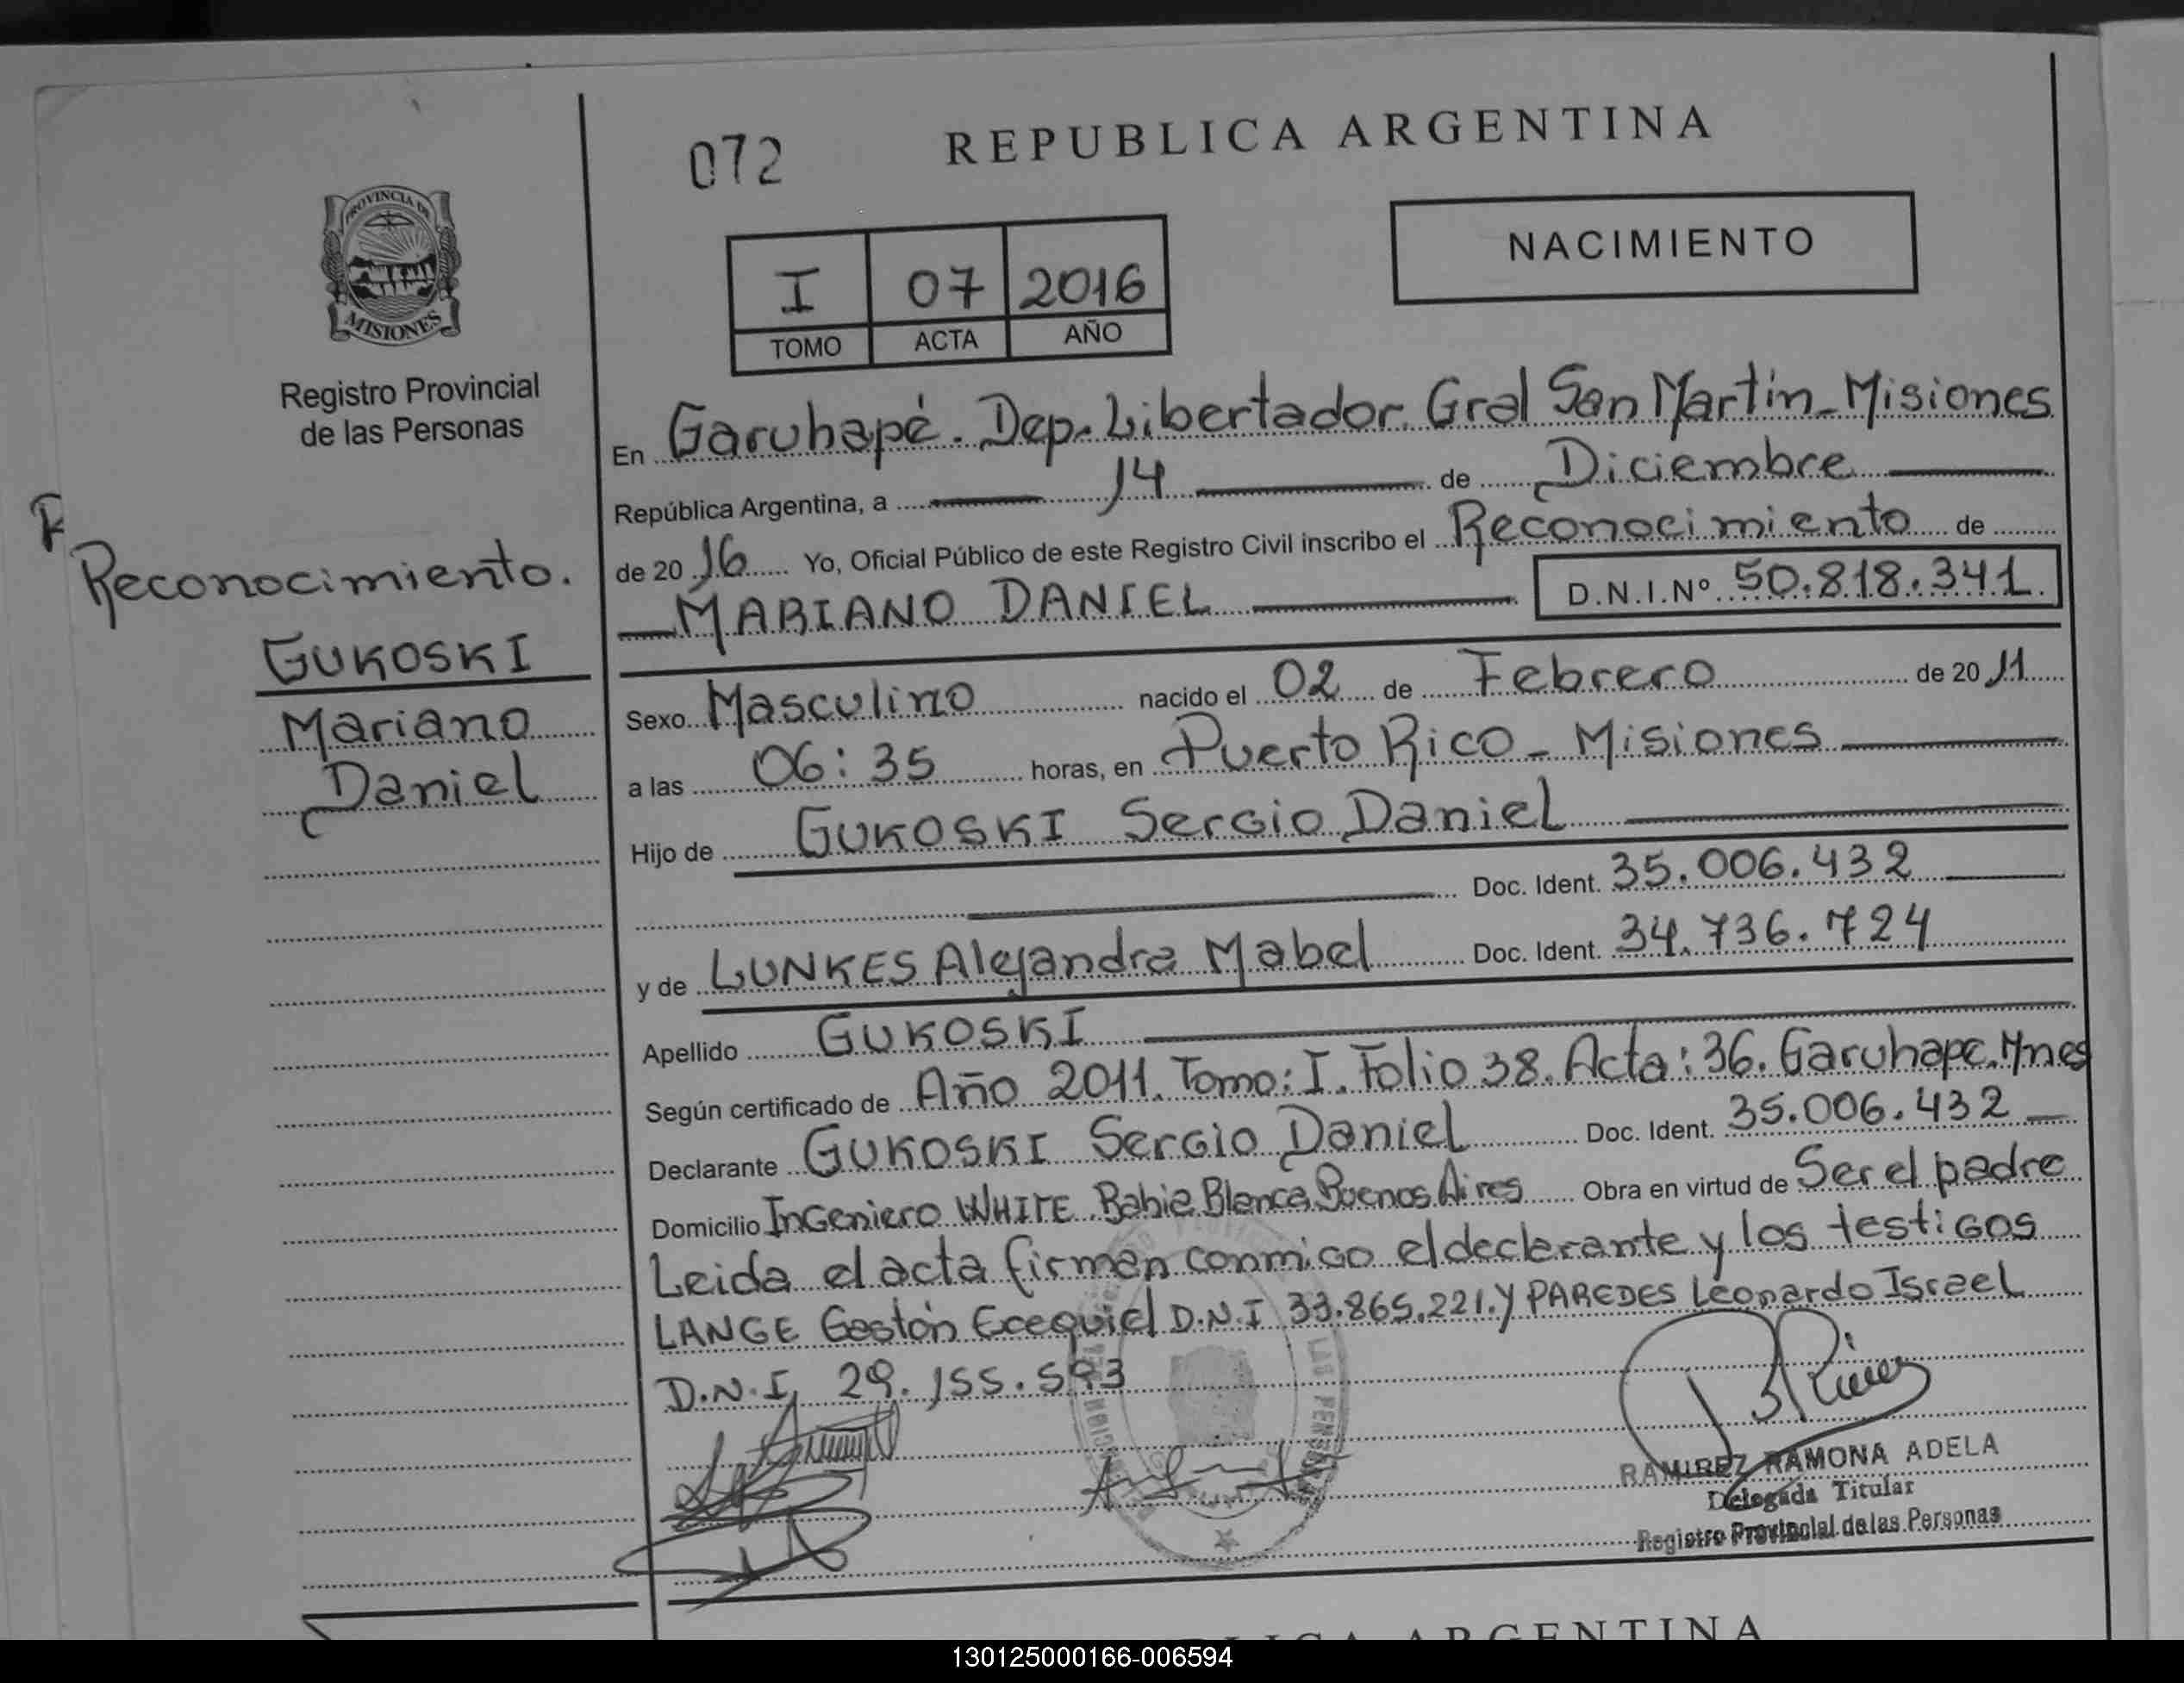 072
REPUBLICA ARGENTINA
PROVINCIA DE
MISIONES
Registro Provincial
de las Personas
NACIMIENTO
I 07 2016
TOMO ACTA AÑO
Reconocimiento.
GUKOSKI
Mariano
Daniel
En Garuhapé. Dep. Libertador. Gral San Martín - Misiones
República Argentina, a 14 de Diciembre
de 2016 Yo, Oficial Público de este Registro Civil inscribo el Reconocimiento de
MARIANO DANIEL D.N.I.Nº 50.818.341
Sexo Masculino nacido el 02 de Febrero de 2011
a las 06:35 horas, en Puerto Rico - Misiones
Hijo de GUKOSKI Sergio Daniel
Doc. Ident. 35.006.432
y de LUNKES Alejandra Mabel Doc. Ident. 34.736.724
Apellido GUKOSKI
Según certificado de Año 2011. Tomo: I. Folio 38. Acta: 36. Garuhape. Mnes
Declarante GUKOSKI Sergio Daniel Doc. Ident. 35.006.432
Domicilio Ingeniero WHITE. Bahia Blanca. Buenos Aires Obra en virtud de Ser el padre
Leida el acta firman conmigo el declarante y los testigos
LANGE Gastón Ecequiel D.N.I 33.865.221. Y PAREDES Leonardo Israel
D.N.I. 29.155.593
RAMIREZ RAMONA ADELA
Delegada Titular
Registro Provincial de las Personas
ARGENTINA
130125000166-006594